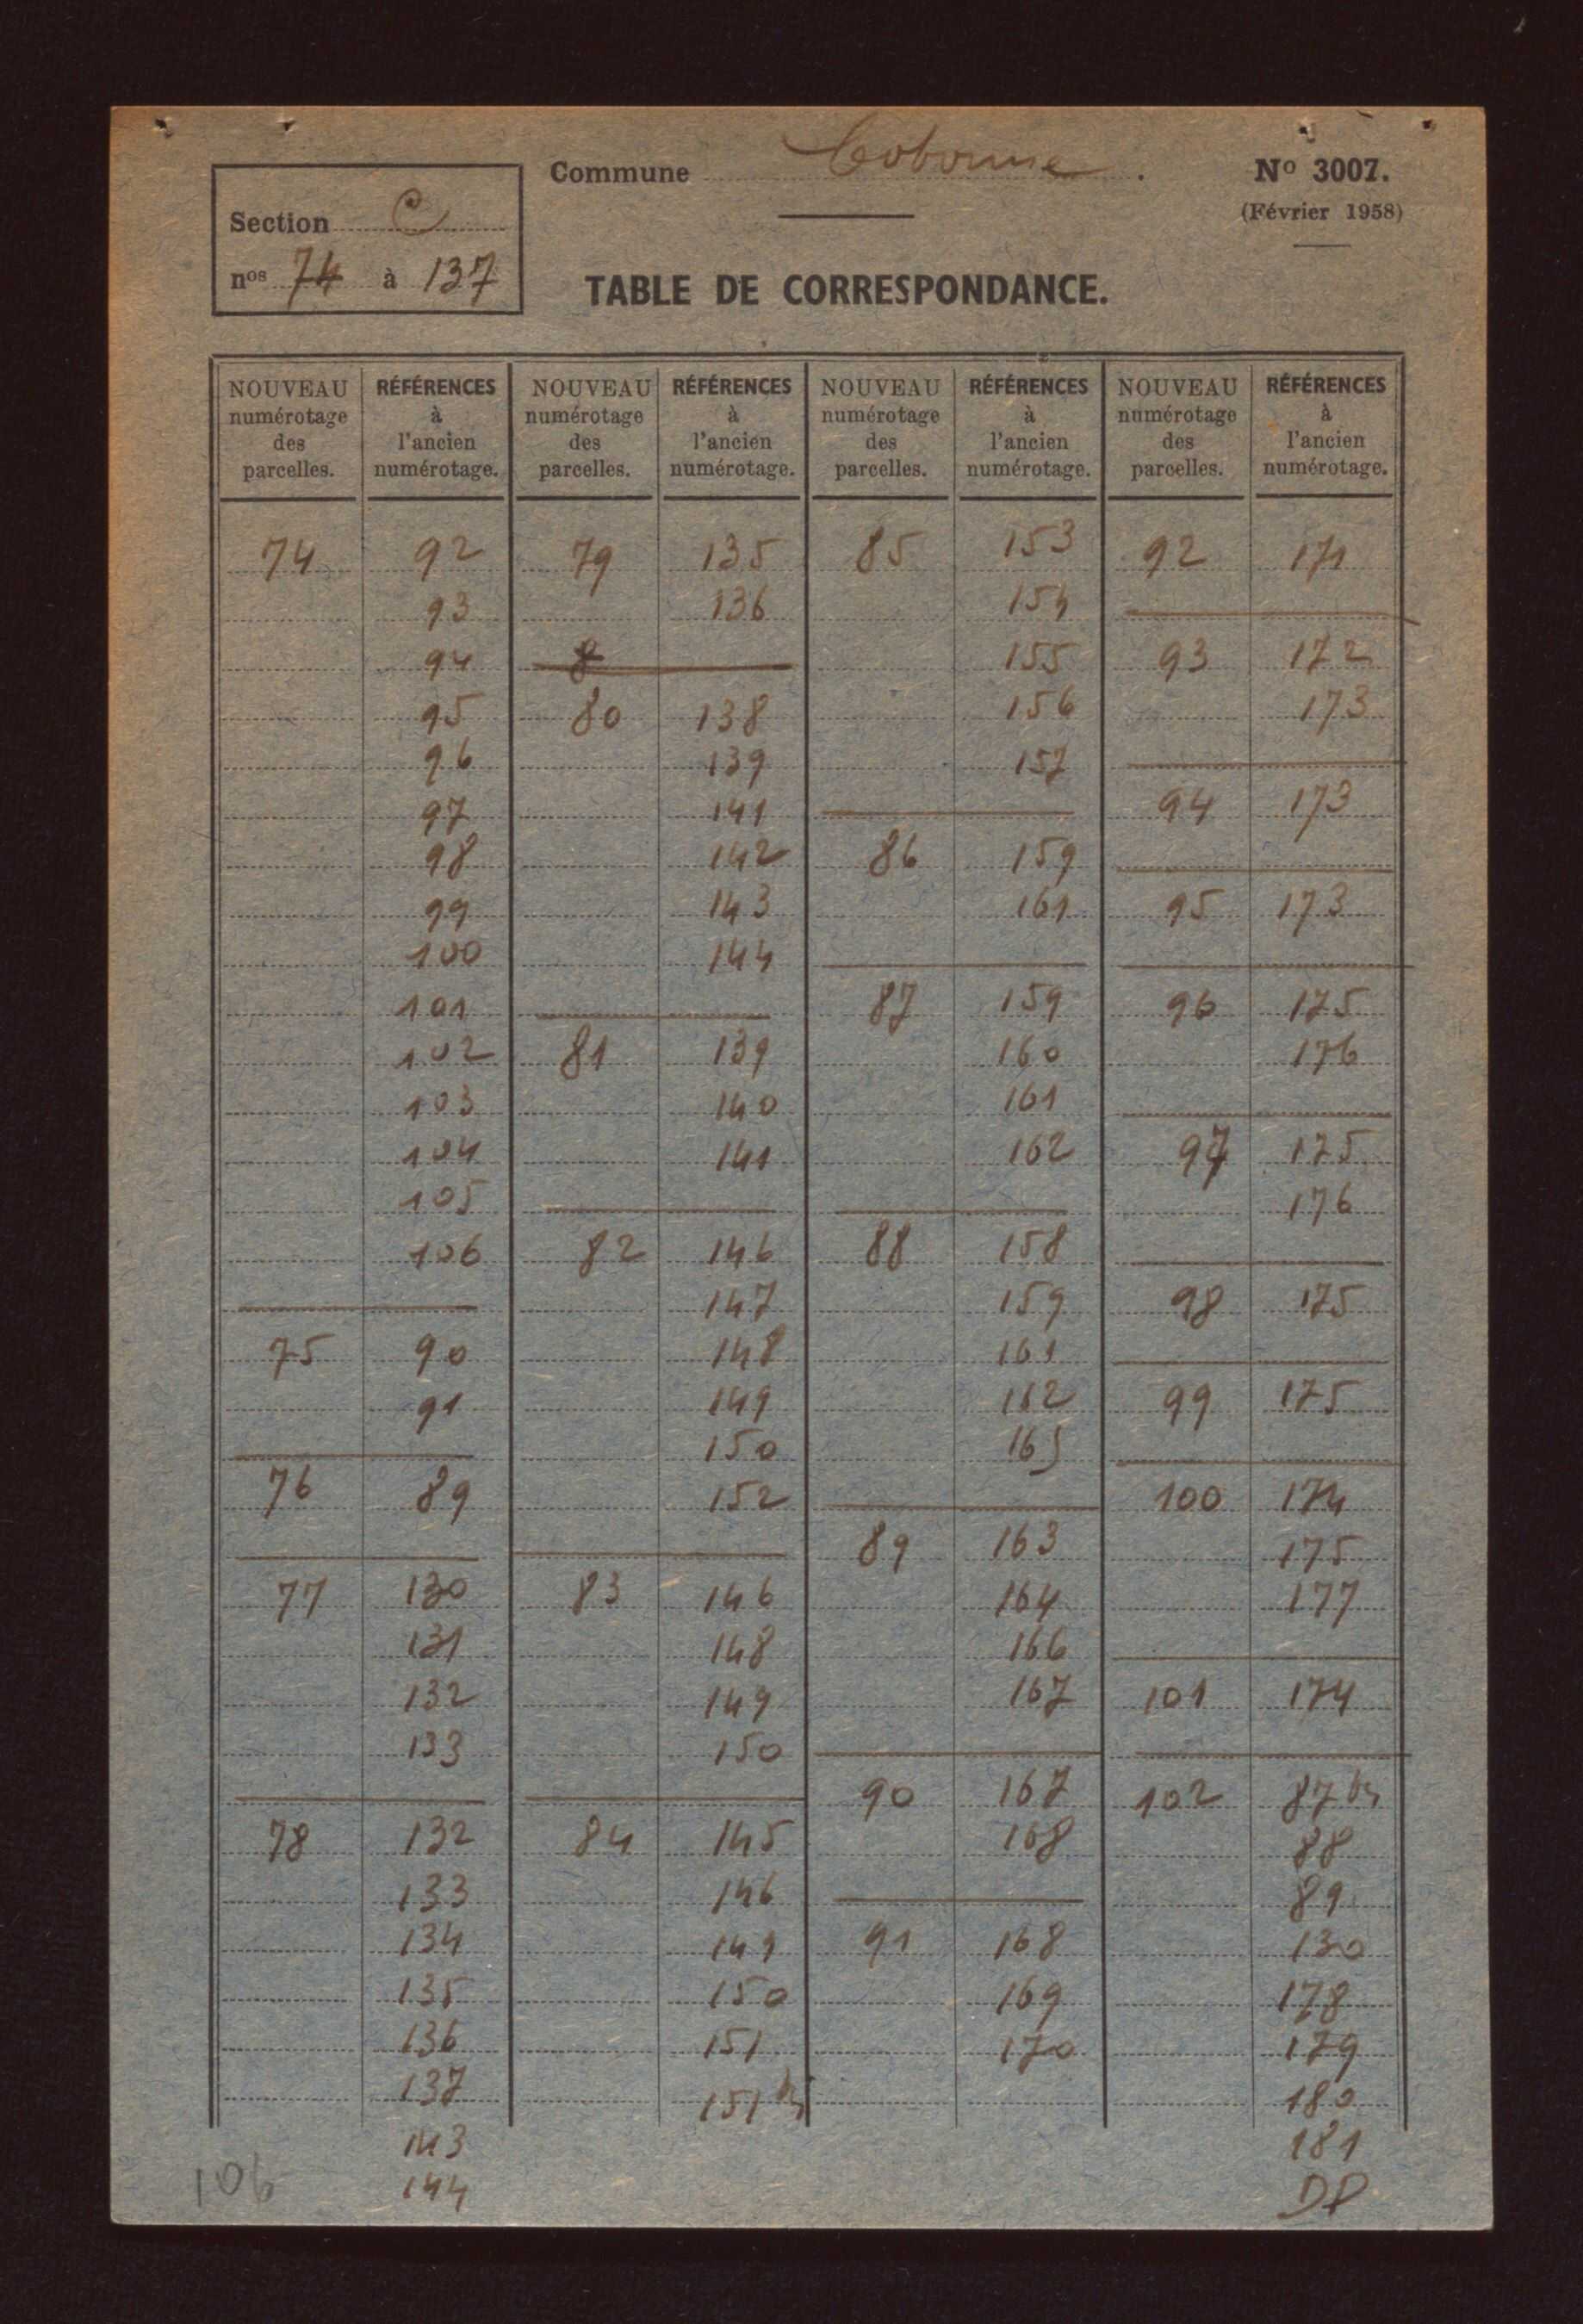 Commune Cobonne.
No 3007.
(Février 1958)
Section C
nos 74 à 137
TABLE DE CORRESPONDANCE.
NOUVEAU numérotage des parcelles. RÉFÉRENCES à l'ancien numérotage. NOUVEAU numérotage des parcelles. RÉFÉRENCES à l'ancien numérotage. NOUVEAU numérotage des parcelles. RÉFÉRENCES à l'ancien numérotage. NOUVEAU numérotage des parcelles. RÉFÉRENCES à l'ancien numérotage.
74 92
93
94
95
96
97
98
99
100
101
102
103
104
105
106
75 90
91
76 89
77 130
131
132
133
78 132
133
134
135
136
137
143
144
79 135
136
8
80 138
139
141
142
143
144
81 139
140
141
82 146
147
148
149
150
152
83 146
148
149
150
84 145
146
149
150
151
151 bis
85 153
154
155
156
157
86 159
161
87 159
160
161
162
88 158
159
161
162
165
89 163
164
166
167
90 167
168
91 168
169
170
92 171
93 172
173
94 173
95 173
96 175
176
97 175
176
98 175
99 175
100 174
175
177
101 174
102 87 bis
88
89
130
178
179
180
181
DP
106